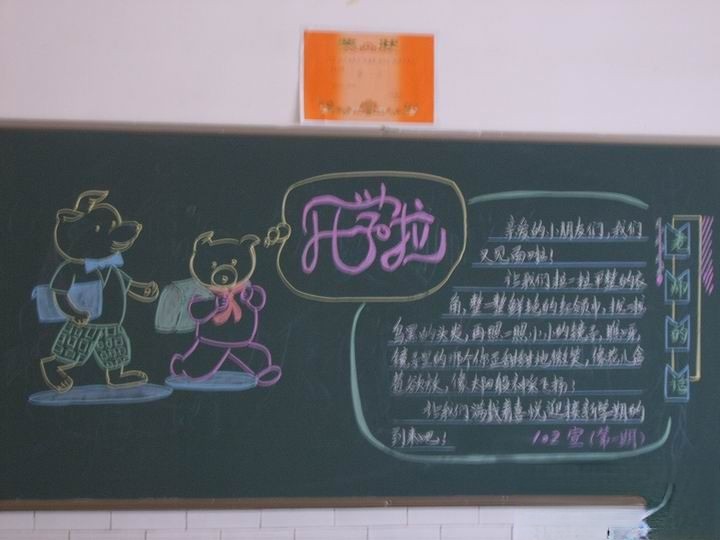 开学啦
老师的话
亲爱的小朋友们，我们
又见面啦！
让我们拉一拉平整的衣
角，整一整鲜艳的红领巾，拢一拢
乌黑的头发，再照一照小小的镜子，瞧
镜子里的那个你正甜甜地微笑，像花儿含
苞欲放，像太阳
让我们满载着喜悦，迎接新学期的
到来吧！
102宣（第一期）